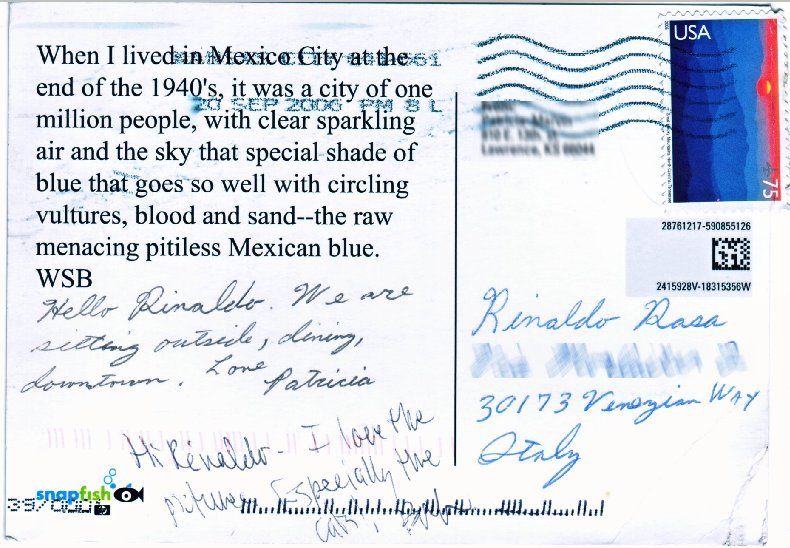 When I lived in Mexico City at the
end of the 1940's, it was a city of one
million people, with clear sparkling
air and the sky that special shade of
blue that goes so well with circling
vultures, blood and sand--the raw
menacing pitiless Mexican blue.
WSB
Hello Rinaldo. We are
sitting outside, dining,
downtown. Love
Patricia
Hi Rinaldo - I love the
pictures. Especially the
snapfish
20 SEP 2006 PM 8 L
USA
75
28761217-590855126
2415928V-18315356W
Rinaldo Rasa
30173 Venezian Way
Italy